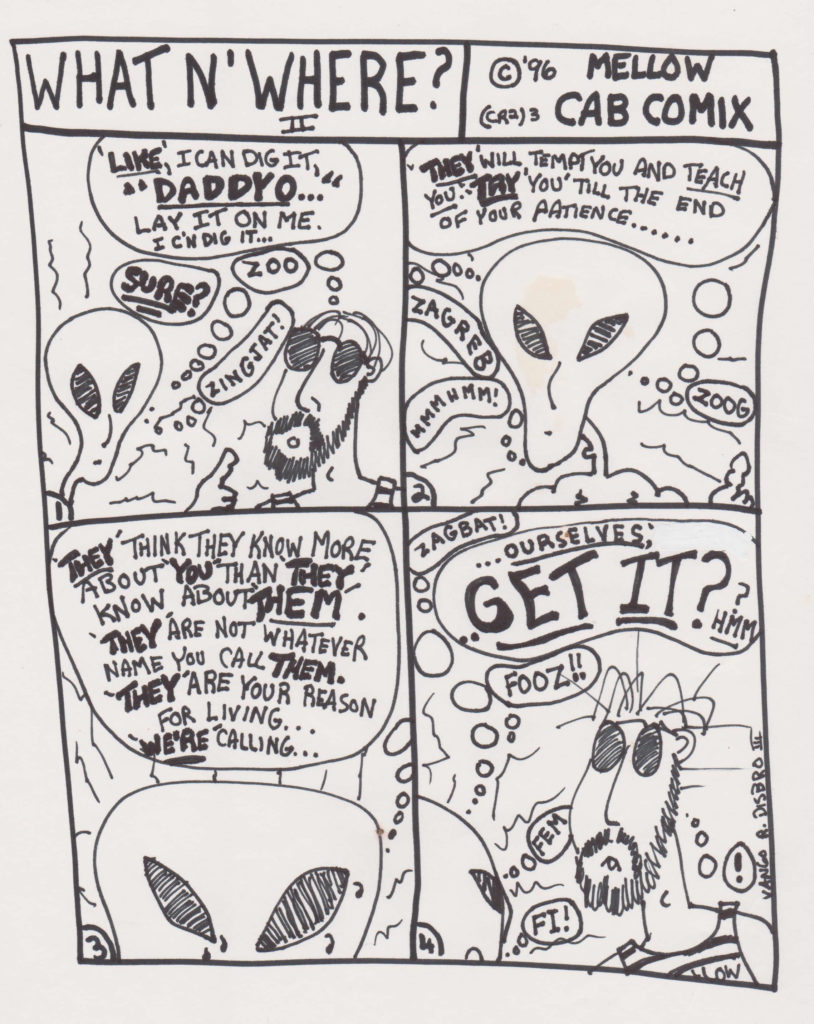 WHAT N' WHERE?
II
© '96 MELLOW
(CR2)3 CAB COMIX
'LIKE', I CAN DIG IT,
"DADDYO..."
LAY IT ON ME.
I C'N DIG IT...
SURE?
ZOO
ZINGJAT!
1
'THEY' WILL TEMPT YOU AND TEACH
YOU. 'TRY' 'YOU' TILL THE END
OF YOUR PATIENCE.......
ZAGREB
HMMHMM!
ZOOG
2
'THEY' THINK THEY KNOW MORE
ABOUT "YOU" THAN 'THEY'
KNOW ABOUT 'THEM'.
'THEY' ARE NOT WHATEVER
NAME YOU CALL THEM.
'THEY' ARE YOUR REASON
FOR LIVING...
'WE'RE' CALLING...
3
ZAGBAT!
...OURSELVES,
..GET IT?
?
HMM
FOOZ!!
FEM
FI!
!
4
LOW
VANGO R. DISBRO III